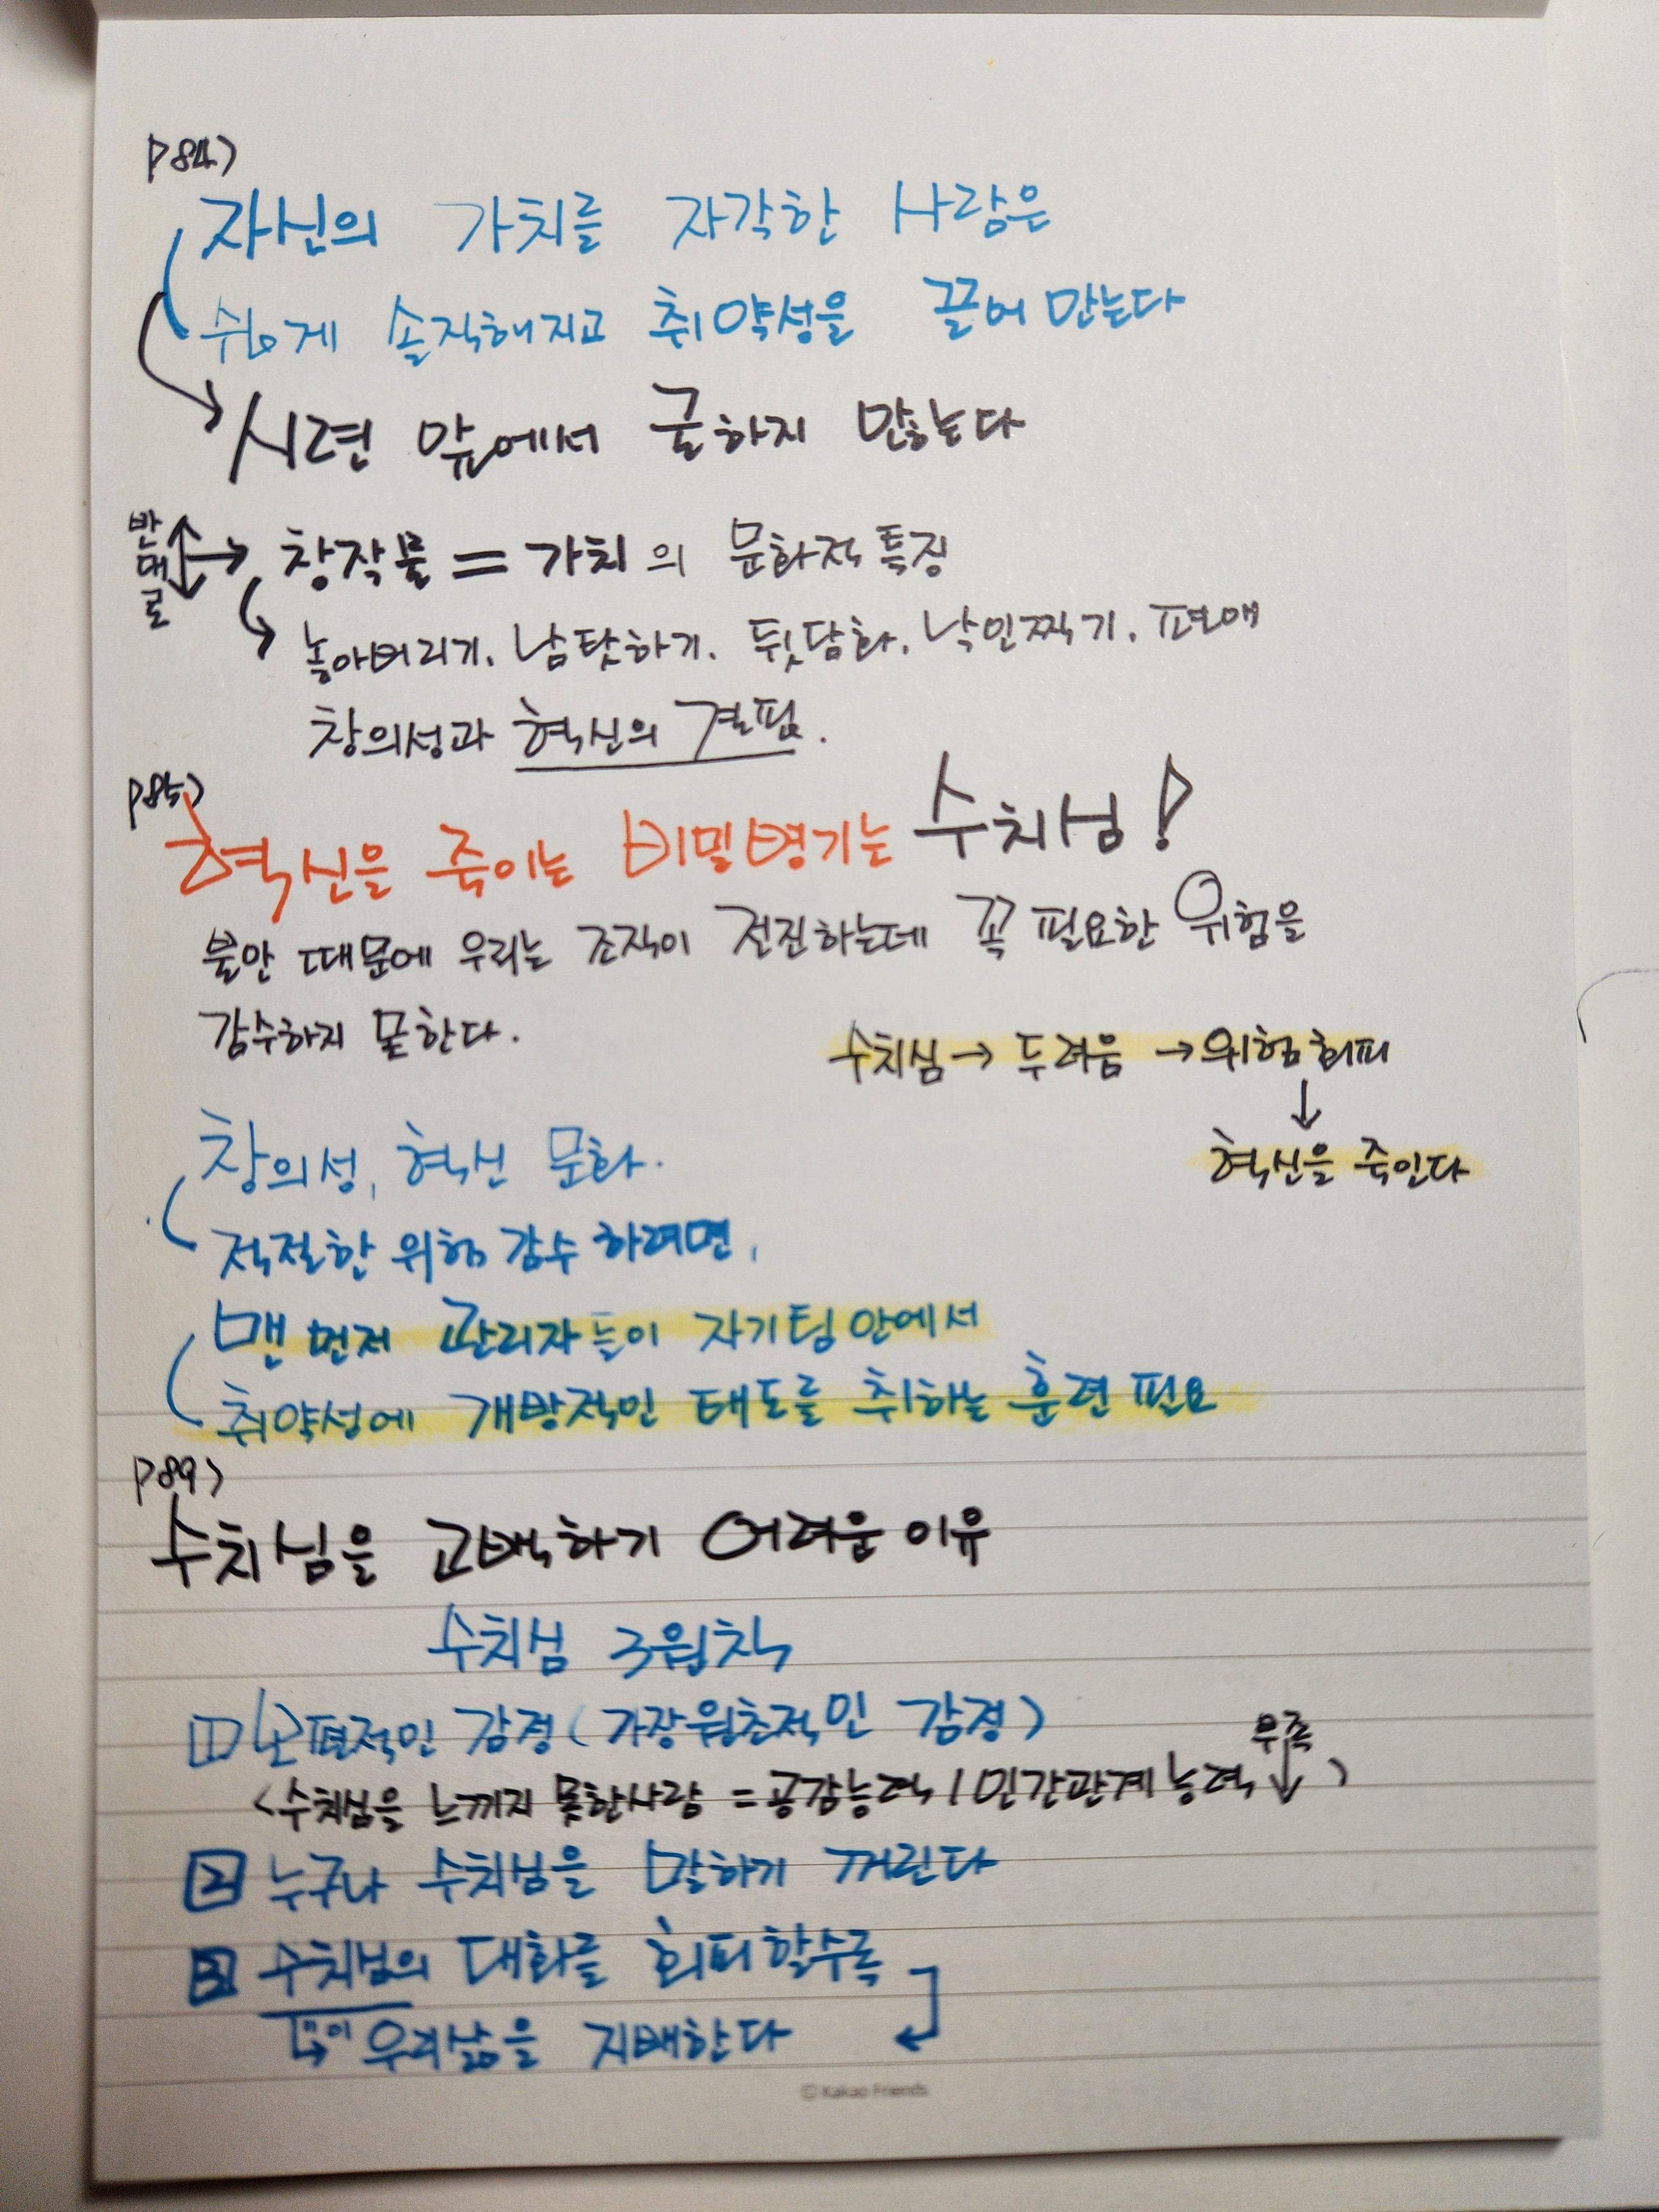 P84)
자신의 가치를 자각한 사람은
쉽게 솔직해지고 취약성을 끌어안는다
시련 앞에서 굴하지 않는다
반대로
창작물 = 가치의 문화적 특징
놓아버리기. 남탓하기. 뒷담화. 낙인찍기. 편애
창의성과 혁신의 결핍.
P85)
혁신을 죽이는 비밀병기는 수치심!
불안 때문에 우리는 조직이 전진하는데 꼭 필요한 위험을
감수하지 못한다.
수치심 → 두려움 → 위험회피
↓
혁신을 죽인다
창의성, 혁신 문화.
적절한 위험 감수 하려면,
맨 먼저 관리자들이 자기팀 안에서
취약성에 개방적인 태도를 취하는 훈련 필요
P89)
수치심을 고백하기 어려운 이유
수치심 3원칙
1 보편적인 감정 (가장 원초적인 감정)
부족
<수치심을 느끼지 못한사람 = 공감능력 / 인간관계 능력 ↓ >
2 누구나 수치심을 말하기 꺼린다
3 수치심의 대화를 회피할수록
↳ "이 우리삶을 지배한다
© Kakao Friends